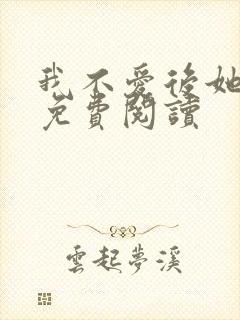 我不愛後她
免費閱讀
雲起夢溪